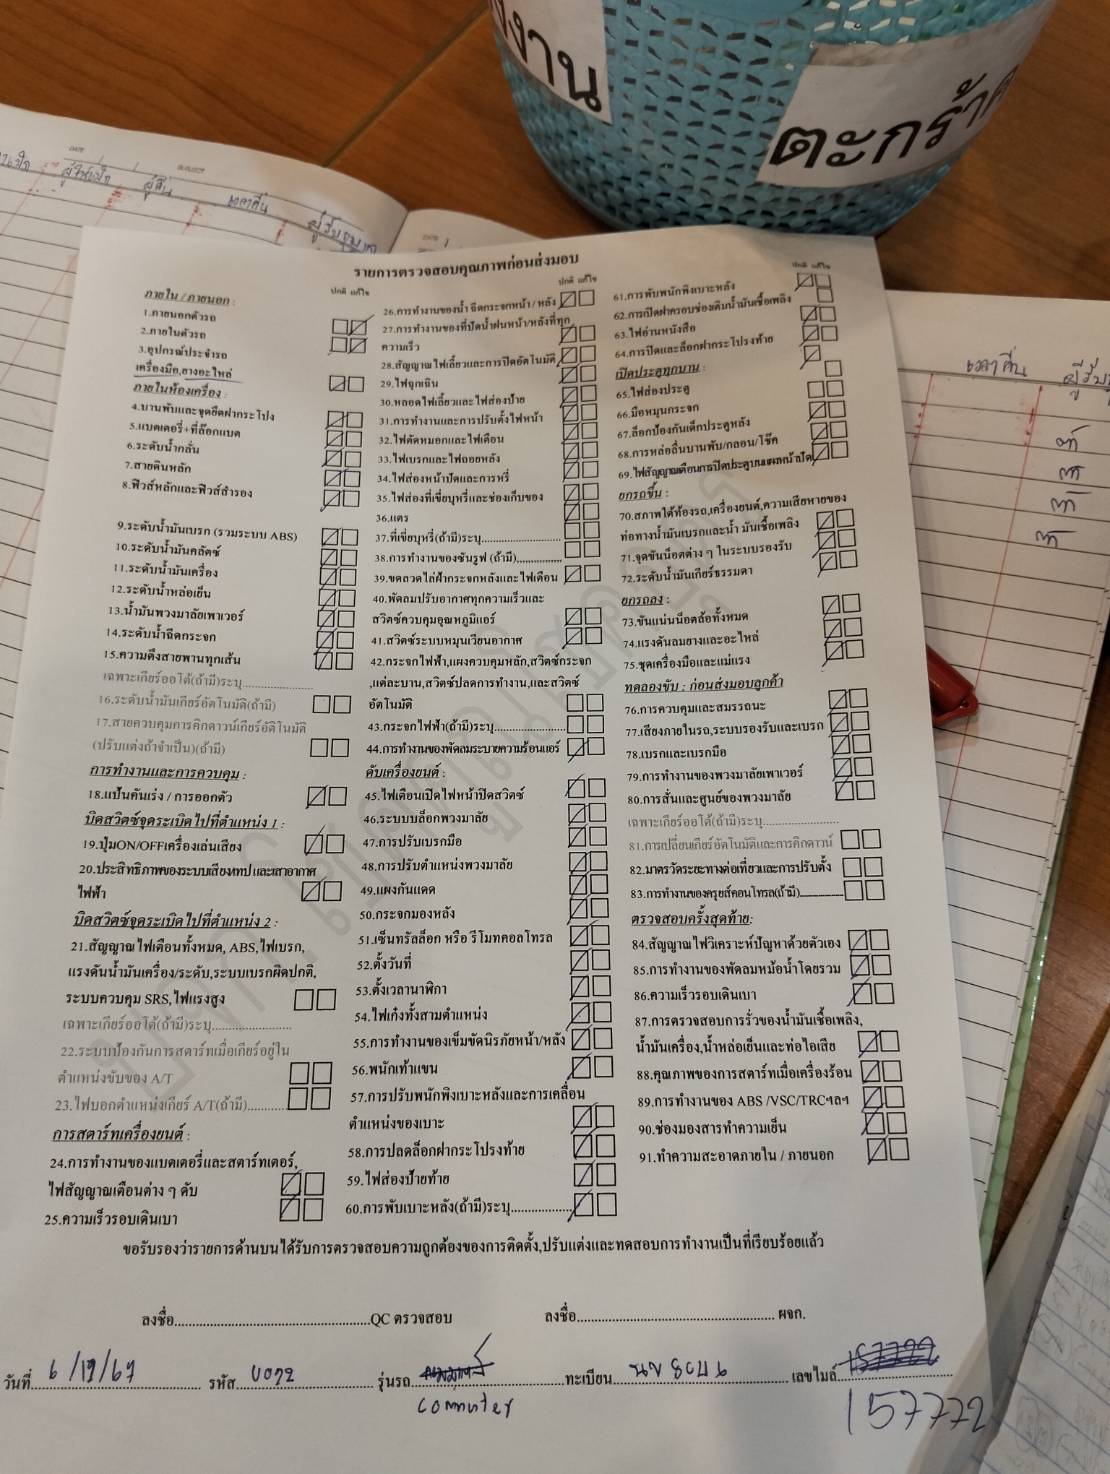 งาน
ตะกร้า
รายการตรวจสอบคุณภาพก่อนส่งมอบ
ปกติ แก้ไข
ภายใน / ภายนอก :
1.ภายนอกตัวรถ
2.ภายในตัวรถ
3.อุปกรณ์ประจำรถ
เครื่องมือ,ยางอะไหล่
ภายในห้องเครื่อง :
4.บานพับและจุดยึดฝากระโปรง
5.แบตเตอรี่+ที่ล๊อกแบต
6.ระดับน้ำกลั่น
7.สายดินหลัก
8.ฟิวส์หลักและฟิวส์สำรอง
9.ระดับน้ำมันเบรก (รวมระบบ ABS)
10.ระดับน้ำมันคลัตช์
11.ระดับน้ำมันเครื่อง
12.ระดับน้ำหล่อเย็น
13.น้ำมันพวงมาลัยพาวเวอร์
14.ระดับน้ำฉีดกระจก
15.ความตึงสายพานทุกเส้น
เฉพาะเกียร์ออโต้(ถ้ามี)ระบุ................
16.ระดับน้ำมันเกียร์อัตโนมัติ(ถ้ามี)
17.สายควบคุมการคิกดาวน์เกียร์อัตโนมัติ
(ปรับแต่งถ้าจำเป็น)(ถ้ามี)
การทำงานและการควบคุม :
18.แป้นคันเร่ง / การออกตัว
บิดสวิตซ์จุดระเบิดไปที่ตำแหน่ง 1 :
19.ปุ่มON/OFFเครื่องเล่นเสียง
20.ประสิทธิภาพของระบบเสียงเทป และเสาอากาศ
ไฟฟ้า
บิดสวิตซ์จุดระเบิดไปที่ตำแหน่ง 2 :
21.สัญญาณไฟเตือนทั้งหมด, ABS,ไฟเบรก,
แรงดันน้ำมันเครื่อง/ระดับ,ระบบเบรกผิดปกติ,
ระบบควบคุม SRS,ไฟแรงสูง
เฉพาะเกียร์ออโต้(ถ้ามี)ระบุ................
22.ระบบป้องกันการสตาร์ทเมื่อเกียร์อยู่ใน
ตำแหน่งขับของ A/T
23.ไฟบอกตำแหน่งเกียร์ A/T(ถ้ามี)..........
การสตาร์ทเครื่องยนต์ :
24.การทำงานของแบตเตอรี่และสตาร์ทเตอร์,
ไฟสัญญาณเตือนต่าง ๆ ดับ
25.ความเร็วรอบเดินเบา
ปกติ แก้ไข
26.การทำงานของน้ำ ฉีดกระจกหน้า / หลัง
27.การทำงานของที่ปัดน้ำฝนหน้า/หลังที่ทุก
ความเร็ว
28.สัญญาณไฟเลี้ยวและการปิดอัตโนมัติ
29.ไฟฉุกเฉิน
30.หลอดไฟเลี้ยวและไฟส่องป้าย
31.การทำงานและการปรับตั้งไฟหน้า
32.ไฟตัดหมอกและไฟเตือน
33.ไฟเบรกและไฟถอยหลัง
34.ไฟส่องหน้าปัดและการหรี่
35.ไฟส่องที่เขี่ยบุหรี่และช่องเก็บของ
36.แตร
37.ที่เขี่ยบุหรี่(ถ้ามี)ระบุ................
38.การทำงานของซันรูฟ (ถ้ามี)..........
39.ขดลวดไล่ฝ้ากระจกหลังและไฟเตือน
40.พัดลมปรับอากาศทุกความเร็วและ
สวิตซ์ควบคุมอุณหภูมิแอร์
41.สวิตซ์ระบบหมุนเวียนอากาศ
42.กระจกไฟฟ้า,แผงควบคุมหลัก,สวิตซ์กระจก
,แต่ละบาน,สวิตซ์ปลดการทำงาน,และสวิตซ์
อัตโนมัติ
43.กระจกไฟฟ้า(ถ้ามี)ระบุ................
44.การทำงานของพัดลมระบายความร้อนแอร์
ดับเครื่องยนต์ :
45.ไฟเตือนเปิดไฟหน้าปิดสวิตซ์
46.ระบบบล็อกพวงมาลัย
47.การปรับเบรกมือ
48.การปรับตำแหน่งพวงมาลัย
49.แผงกันแดด
50.กระจกมองหลัง
51.เซ็นทรัลล็อก หรือ รีโมทคอลโทรล
52.ตั้งวันที่
53.ตั้งเวลานาฬิกา
54.ไฟเก๋งทั้งสามตำแหน่ง
55.การทำงานของเข็มขัดนิรภัยหน้า/หลัง
56.พนักเท้าแขน
57.การปรับพนักพิงเบาะหลังและการเคลื่อน
ตำแหน่งของเบาะ
58.การปลดล็อกฝากระโปรงท้าย
59.ไฟส่องป้ายท้าย
60.การพับเบาะหลัง(ถ้ามี)ระบุ................
ปกติ แก้ไข
61.การพับพนักพิงเบาะหลัง
62.การเปิดฝาครอบช่องเติมน้ำมันเชื้อเพลิง
63.ไฟอ่านหนังสือ
64.การปิดและล็อกฝากระโปรงท้าย
เปิดประตูทุกบาน :
65.ไฟส่องประตู
66.มือหมุนกระจก
67.ล็อกป้องกันเด็กประตูหลัง
68.การหล่อลื่นบานพับ/กลอน/โช๊ค
69.ไฟสัญญาณเตือนการปิดประตูบนแผงหน้าปัด
ยกรถขึ้น :
70.สภาพใต้ท้องรถ,เครื่องยนต์,ความเสียหายของ
ท่อทางน้ำมันเบรกและน้ำ มันเชื้อเพลิง
71.จุดขันน็อตต่าง ๆ ในระบบรองรับ
72.ระดับน้ำมันเกียร์ธรรมดา
ยกรถลง :
73.ขันแน่นน็อตล้อทั้งหมด
74.แรงดันลมยางและอะไหล่
75.ชุดเครื่องมือและแม่แรง
ทดลองขับ : ก่อนส่งมอบลูกค้า
76.การควบคุมและสมรรถนะ
77.เสียงภายในรถ,ระบบรองรับและเบรก
78.เบรกและเบรกมือ
79.การทำงานของพวงมาลัยเพาเวอร์
80.การสั่นและศูนย์ของพวงมาลัย
เฉพาะเกียร์ออโต้(ถ้ามี)ระบุ................
81.การเปลี่ยนเกียร์อัตโนมัติและการคิกดาวน์
82.มาตรวัดระยะทางต่อเที่ยวและการปรับตั้ง
83.การทำงานของครุยส์คอนโทรล(ถ้ามี)..........
ตรวจสอบครั้งสุดท้าย:
84.สัญญาณไฟวิเคราะห์ปัญหาด้วยตัวเอง
85.การทำงานของพัดลมหม้อน้ำโดยรวม
86.ความเร็วรอบเดินเบา
87.การตรวจสอบการรั่วของน้ำมันเชื้อเพลิง,
น้ำมันเครื่อง,น้ำหล่อเย็นและท่อไอเสีย
88.คุณภาพของการสตาร์ทเมื่อเครื่องร้อน
89.การทำงานของ ABS /VSC/TRCฯลฯ
90.ช่องมองสารทำความเย็น
91.ทำความสะอาดภายใน / ภายนอก
ขอรับรองว่ารายการด้านบนได้รับการตรวจสอบความถูกต้องของการติดตั้ง,ปรับแต่งและทดสอบการทำงานเป็นที่เรียบร้อยแล้ว
ลงชื่อ................QC ตรวจสอบ ลงชื่อ................ ผจก.
วันที่ 6/12/67 รหัส ๒๐๖๖ รุ่นรถ ทะเบียน นข ๕๐๘๖ เลขไมล์ 157722
commuter 157772